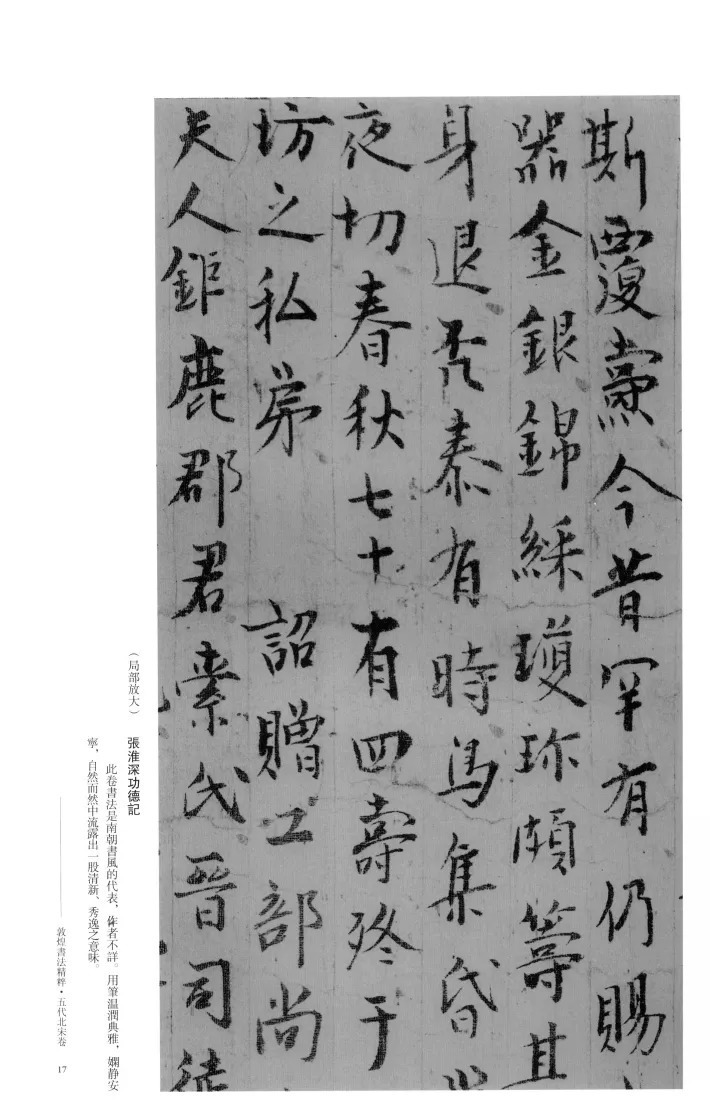 斯覆黨今昔罕有仍賜
器金銀錦綵瓊珍頗籌其
身退否泰有時馬集昏
夜切春秋七十有四壽終于
坊之私弟 詔贈工部尚
夫人鉅鹿郡君索氏晉司徒
（局部放大）
張淮深功德記
此卷書法是南朝書風的代表，作者不詳。用筆溫潤典雅，嫻静安
寧，自然而然中流露出一股清新、秀逸之意味。
敦煌書法精粹・五代北宋卷 17